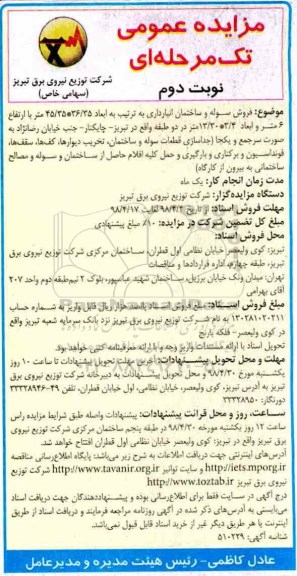 مزایده عمومی
تک‌مرحله‌ای
نوبت دوم
شرکت توزیع نیروی برق تبریز
(سهامی خاص)
موضوع: فروش سوله و ساختمان انبارداری به ترتیب به ابعاد ۳۶/۳۵*۴۵/۳۵ متر با ارتفاع
۶ متر و ابعاد ۳/۴*۱۳/۲۰ متر در دو طبقه واقع در تبریز- چایکنار- جنب خیابان رضانژاد به
صورت سرجمع و یکجا (جداسازی قطعات سوله و ساختمان، تخریب دیوارها، کف‌ها، سقف‌ها،
فونداسیون و برکناری و بارگیری و حمل کلیه اقلام حاصل از ساختمان و سوله و مصالح
ساختمانی به بیرون از کارگاه)
مدت زمان انجام کار: یک ماه
دستگاه مزایده‌گزار: شرکت توزیع نیروی برق تبریز
مهلت فروش اسناد: از تاریخ ۹۸/۴/۲ لغایت ۹۸/۴/۱۷
مبلغ کل تضمین شرکت در مزایده: ۱۰٪ مبلغ پیشنهادی
محل فروش اسناد:
تبریز: کوی ولیعصر خیابان نظامی اول قطران، ساختمان مرکزی شرکت توزیع نیروی برق
تبریز، طبقه چهارم، اداره قراردادها و مناقصات
تهران: میدان ونک خیابان برزیل، ساختمان شهید عباسپور، بلوک ۲ نیم‌طبقه دوم واحد ۲۰۷
آقای بهرامی
مبلغ فروش اسناد: مبلغ فروش اسناد پانصد هزار ریال قابل واریز به شماره حساب
به نام شرکت توزیع نیروی برق تبریز نزد بانک سرمایه شعبه تبریز واقع
در کوی ولیعصر- فلکه بارنج
تحویل اسناد با ارائه مستندات واریز وجه و با ارائه معرفینامه کتبی خواهد بود.
مهلت و محل تحویل پیشنهادات: آخرین مهلت تحویل پیشنهادات تا ساعت ۱۰ روز
یکشنبه مورخ ۹۸/۴/۳۰ و محل تحویل پیشنهادات به دبیرخانه شرکت توزیع نیروی برق
تبریز به آدرس تبریز، کوی ولیعصر، خیابان نظامی، اول خیابان قطران، تلفن ۴۹-۳۳۳۲۸۹۴۶
دورنگار: ۳۳۳۲۸۹۵۰
ساعت، روز و محل قرائت پیشنهادات: پیشنهادات واصله طبق شرایط مزایده راس
ساعت ۱۲ روز یکشنبه مورخه ۹۸/۴/۳۰ در طبقه پنجم ساختمان مرکزی شرکت توزیع نیروی
برق تبریز واقع در تبریز: کوی ولیعصر خیابان نظامی اول قطران افتتاح خواهد شد.
آدرس‌های اینترنتی جهت دریافت اطلاعات به شرح زیر می‌باشد: پایگاه اطلاع‌رسانی مناقصه
http://iets.mporg.ir و سایت توانیر http://www.tavanir.org.ir شرکت توزیع
نیروی برق تبریز http://www.toztab.ir
درج آگهی در سایت فقط برای اطلاع‌رسانی بوده و پیشنهاددهندگان جهت دریافت اسناد
می‌بایستی به آدرس‌های ذکر شده در آگهی روزنامه مراجعه فرمایند و دریافت اسناد از طریق
اینترنت یا هر طریق دیگر غیر از خرید اسناد قابل قبول نمی‌باشد.
شناسه آگهی: ۵۱۰۲۲۹
عادل کاظمی- رئیس هیئت مدیره و مدیرعامل